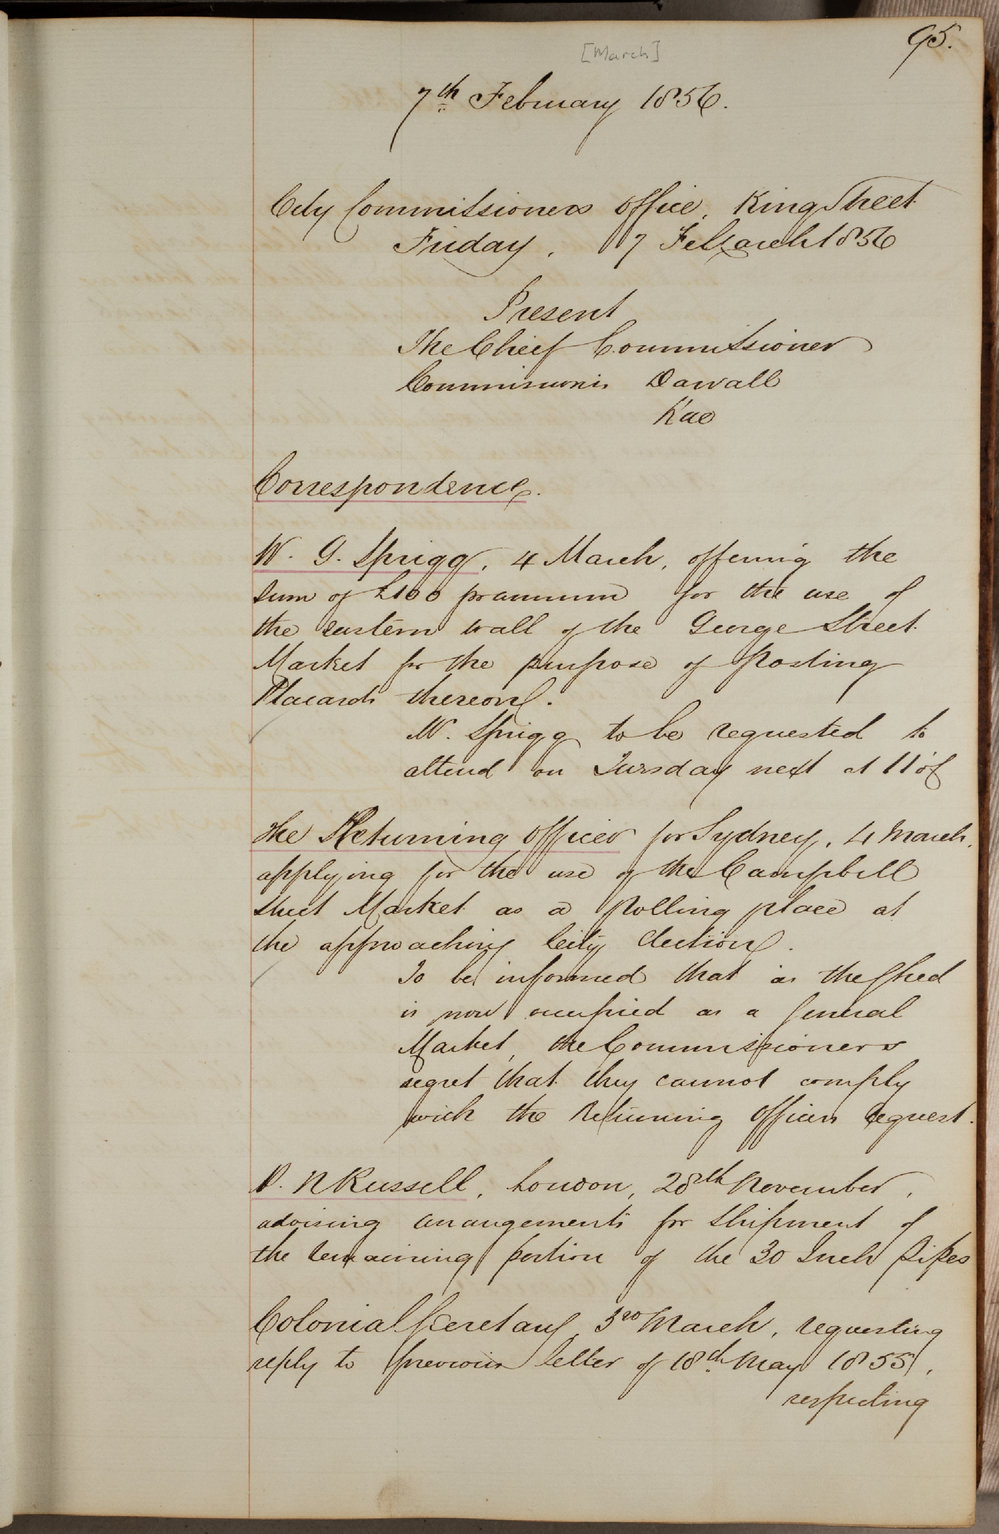 95.
[March]
7th February 1856.
City Commissioners Office, King Street
Friday, 7 March 1856
Present
The Chief Commissioner
Commissioners Darvall
Rae
Correspondence.
W. G. Sprigg, 4 March, offering the
sum of £100 pr annum for the use of
the eastern wall of the George Street
Market for the purpose of Posting
Placards thereon.
W. Sprigg to be requested to
attend on Tuesday next at 11 o'C
The Returning Officer for Sydney, 4 March,
applying for the use of the Campbell
Street Market as a Polling place at
the approaching City Election.
To be informed that as the Shed
is now occupied as a General
Market, the Commissioners
regret that they cannot comply
with the Returning Officers request.
D. N Russell, London, 28th November,
advising arrangements for Shipment of
the remaining portion of the 30 Inch Pipes
Colonial Secretary 3rd March, requesting
reply to previous letter of 18th May 1855,
respecting